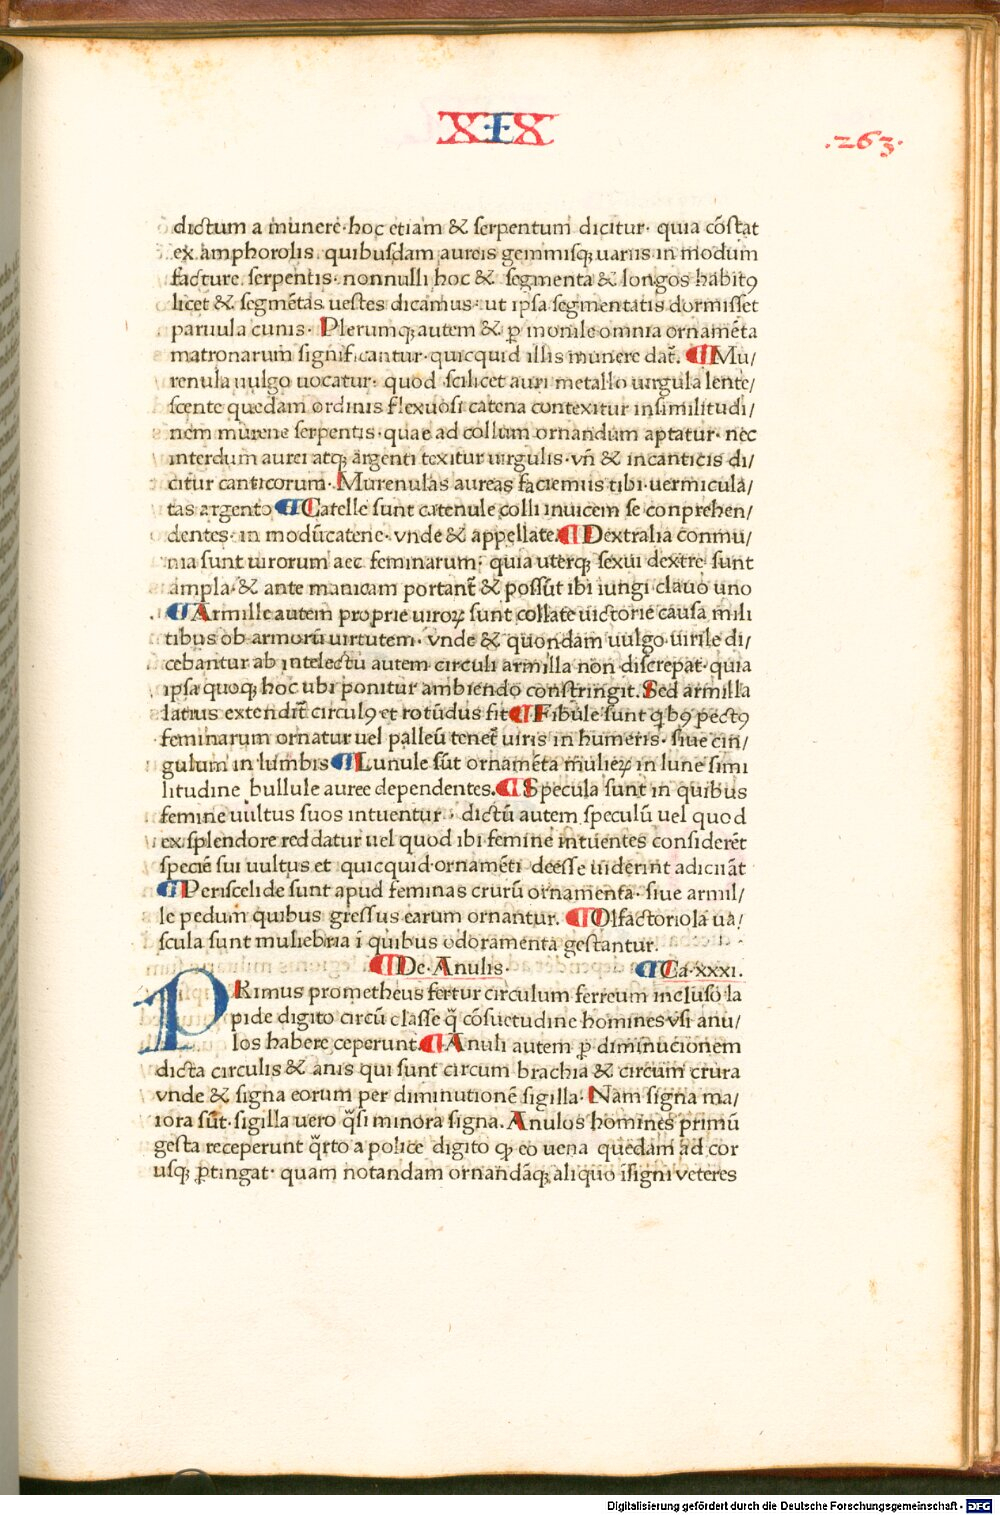 XIX
.263.
dictum a munere·hoc etiam & serpentum dicitur· quia cōstat
ex amphorolis quibusdam aureis gemmisq; uariis in modum
facture serpentis· nonnulli hoc & segmenta & longos habitꝯ
licet & segmētas uestes dicamus· ut ipsa segmentatis dormisset
paruula cunis· Plerumq; autem & ꝑ monile omnia ornamēta
matronarum significantur·quicquid illis munere dat̄. ¶Mu/
renula uulgo uocatur· quod scilicet auri metallo uirgula lente/
scente quedam ordinis flexuosi catena contexitur insimilitudi/
nem murene serpentis·quae ad collum ornandum aptatur· nec
interdum aurei atq; argenti texitur uirgulis·vn̄ & incanticis di/
citur canticorum· Murenulas aureas faciemus tibi uermicula/
tas argento ¶Catelle sunt catenule colli inuicem se conprehen/
dentes· in modūcatene· vnde & appellate ¶Dextralia conmu/
nia sunt uirorum aec feminarum· quia uterq; sexui dextre sunt
ampla·& ante manicam portant̄ & possūt ibi iungi clauo uno
¶Armille autem proprie uiroꝝ sunt collate uictorie causa mili
tibus ob armorū uirtutem· vnde & quondam uulgo uirile di/
cebantur ab intelectu autem circuli armilla non discrepat·quia
ipsa quoq; hoc ubi ponitur ambiendo constringit. Sed armilla
latius extendit̄ circulꝯ et rotūdus fit ¶Fibule sunt q̄ bꝯ pectꝯ
feminarum ornatur uel palleū tenet̄ uiris in humeris· siue cin/
gulum in lumbis ¶Lunule sūt ornamēta mulieꝝ in lune simi
litudine bullule auree dependentes. ¶Specula sunt in quibus
femine uultus suos intuentur· dictū autem speculū uel quod
ex splendore reddatur uel quod ibi femine intuentes considerēt
speciē sui uultus et quicquid ornamēti deesse uiderint adiciāt
¶Periscelide sunt apud feminas crurū ornamenta· siue armil/
le pedum quibus gressus earum ornantur. ¶Olfactoriola ua/
scula sunt muliebria ī quibus odoramenta gestantur.
¶De·Anulis. ¶Ca·xxxi.
PRimus prometheus fertur circulum ferreum incluso la
pide digito circū classe q̄ cōsuetudine homines vsi anu/
los habere ceperunt. ¶Anuli autem ꝑ diminucionem
dicta circulis & anis qui sunt circum brachia & circum crura
vnde & signa eorum per diminutionē sigilla· Nam signa ma/
iora sūt·sigilla uero q̄si minora signa. Anulos homines primū
gesta receperunt q̄rto a police digito ꝙ eo uena quedam ad cor
usq; ꝑtingat· quam notandam ornandāq; aliquo īsigni veteres
Digitalisierung gefördert durch die Deutsche Forschungsgemeinschaft · DFG